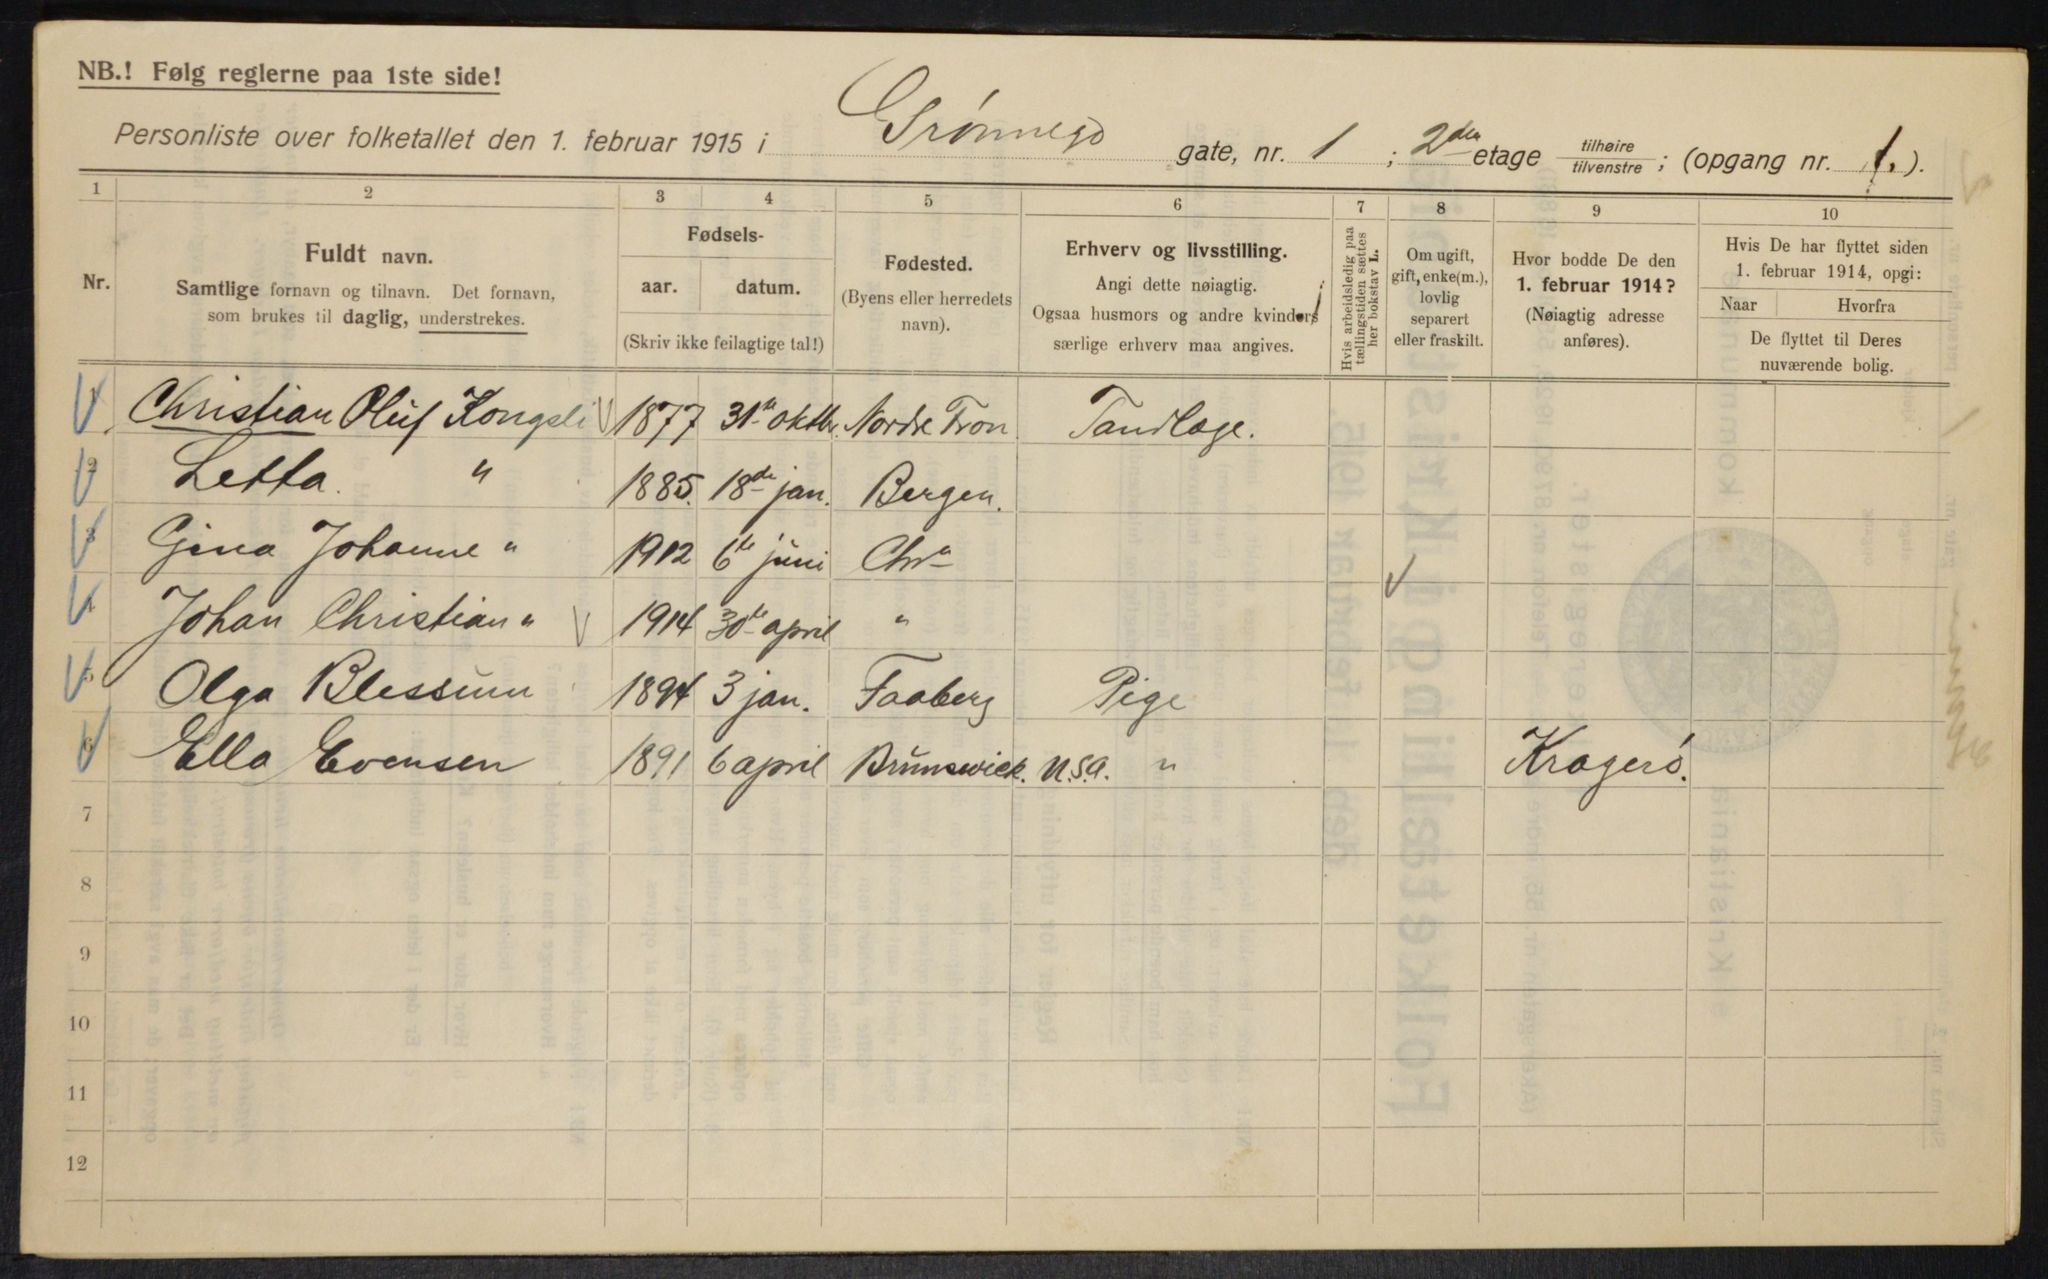 NB.! Følg reglerne paa 1ste side!
Personliste over folketallet den 1. februar 1915 i Grønnegd gate, nr. 1 ; 2den etage tilhøire / tilvenstre ; (opgang nr. 1. ).
1 2 3 4 5 6 7 8 9 10
Nr.
Fuldt navn.
Samtlige fornavn og tilnavn. Det fornavn,
som brukes til daglig, understrekes.
Fødsels-
aar. datum.
(Skriv ikke feilagtige tal!)
Fødested.
(Byens eller herredets
navn).
Erhverv og livsstilling.
Angi dette nøiagtig.
Ogsaa husmors og andre kvinders
særlige erhverv maa angives.
Hvis arbeidsledig paa
tællingstiden sættes
her bokstav L.
Om ugift,
gift, enke(m.),
lovlig
separert
eller fraskilt.
Hvor bodde De den
1. februar 1914?
(Nøiagtig adresse
anføres).
Hvis De har flyttet siden
1. februar 1914, opgi:
Naar Hvorfra
De flyttet til Deres
nuværende bolig.
1 Christian Oluf Kongsli 1877 31te oktbr. Nordre Fron Tandlæge.
2 Letta. " 1885. 18de jan. Bergen.
3 Gina Johanne " 1912 6te juni Chra
4 Johan Christian " 1914 30te april "
5 Olga Blessum 1894 3 jan. Faaberg Pige
6 Ella Evensen 1891 6 april Brunswick. U.S.A. " Kragerø.
7
8
9
10
11
12